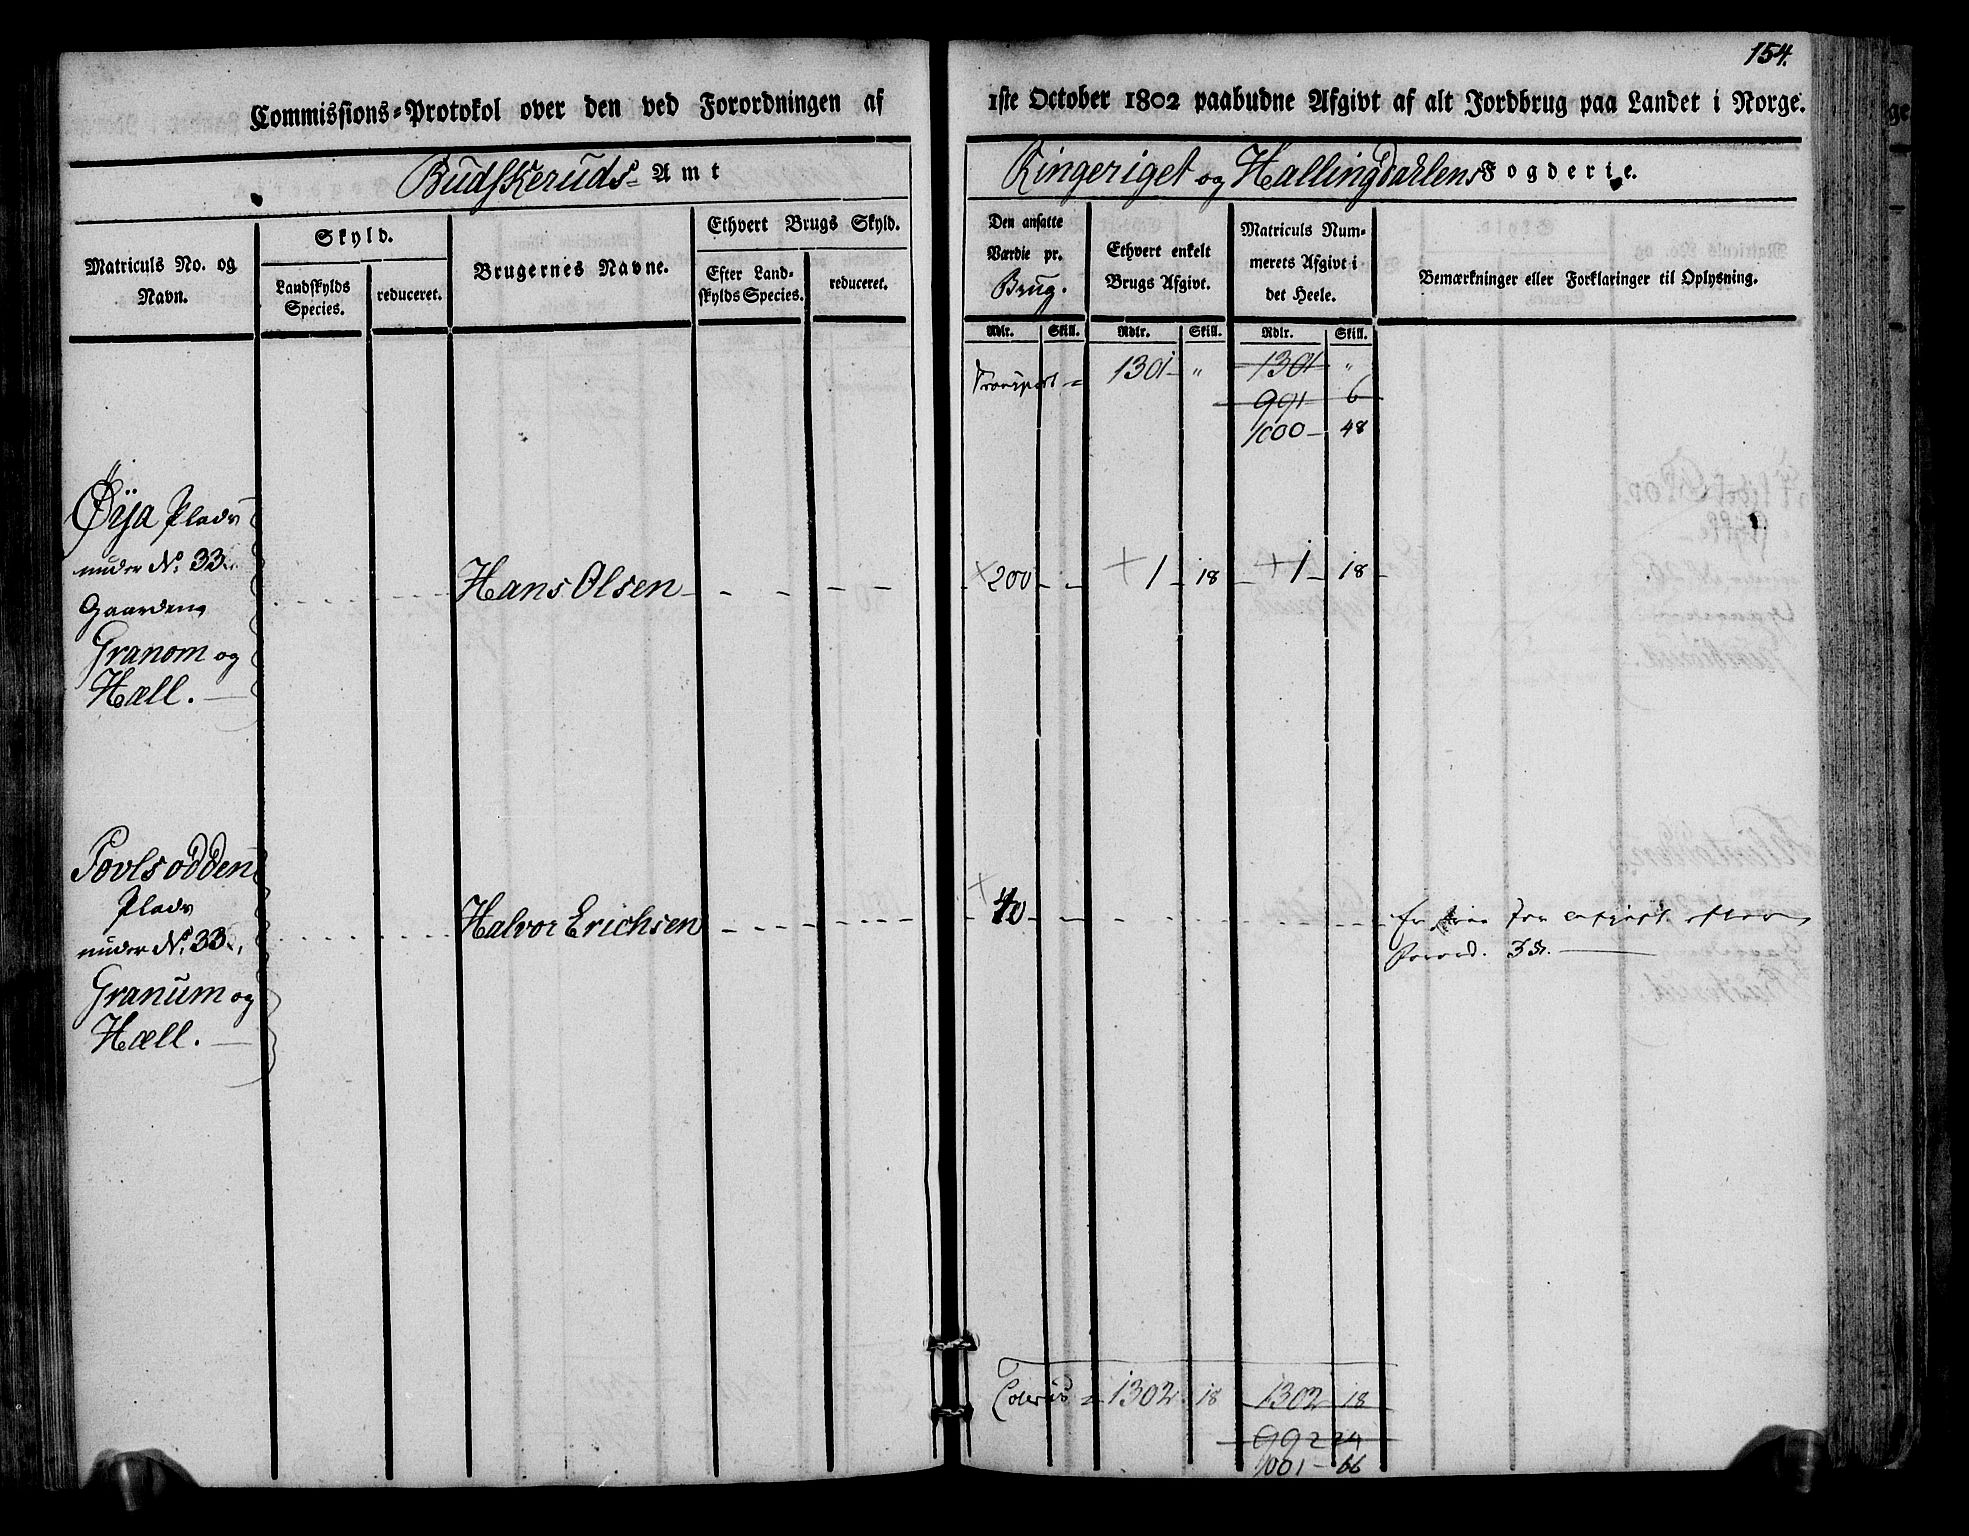 154.
Commissions-Protokol over den ved Forordningen af 1ste October 1802 paabudne Afgivt af alt Jordbrug paa Landet i Norge.
Budskeruds Amt
Ringeriget og Hallingdahlens Fogderie.
Matriculs No. og Navn.
Skyld.
Landskylds Species.
reduceret.
Brugernes Navne.
Ethvert Brugs Skyld.
Efter Landskylds Species.
reduceret.
Den ansatte Værdie pr. Brug.
Ethvert enkelt Brugs Afgivt.
Matriculs Nummerets Afgivt i det Heele.
Bemærkninger eller Forklaringer til Oplysning.
Rdlr. Skill. Rdlr. Skill. Rdlr. Skill.
Transport = 1301 - " 1301 "
991 6
1000 - 48
Øÿa Plads
under No. 33
Gaarden
Granom og
Hæll.
Hans Olsen
+ 200 + 1 18 + 1 18
Povlsodden
Plads
under No. 33
Granum og
Hæll.
Halvor Erichsen
+ 40
Er frie for Afgivt efter
Forord. 3 §.
Lateris = 1302 18 1302 18
992 24
1001 - 66